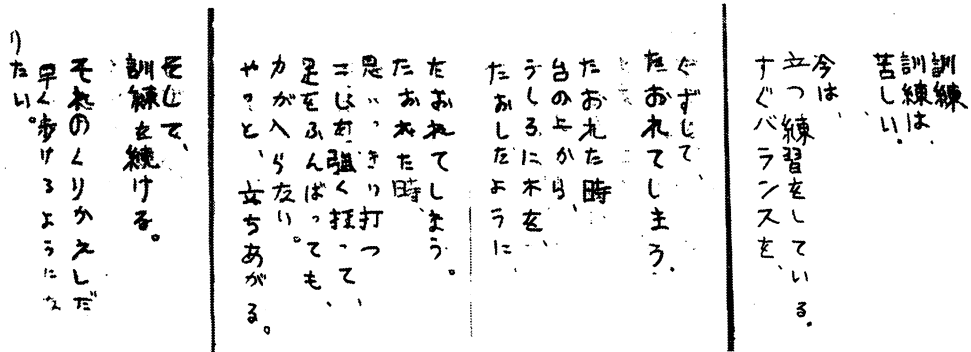 訓練
訓練は、
苦しい。
今は、
立つ練習をしている。
すぐバランスを、
くずして、
たおれてしまう。
たおれた時
台の上から、
うしろに木を、
たおしたように
たおれてしまう。
たおれた時、
思いっきり打つ
こしを強く打って、
足をふんばっても、
力が入らない。
やっと、立ちあがる。
そして、
訓練を続ける。
それのくりかえしだ
早く歩けるようにな
りたい。